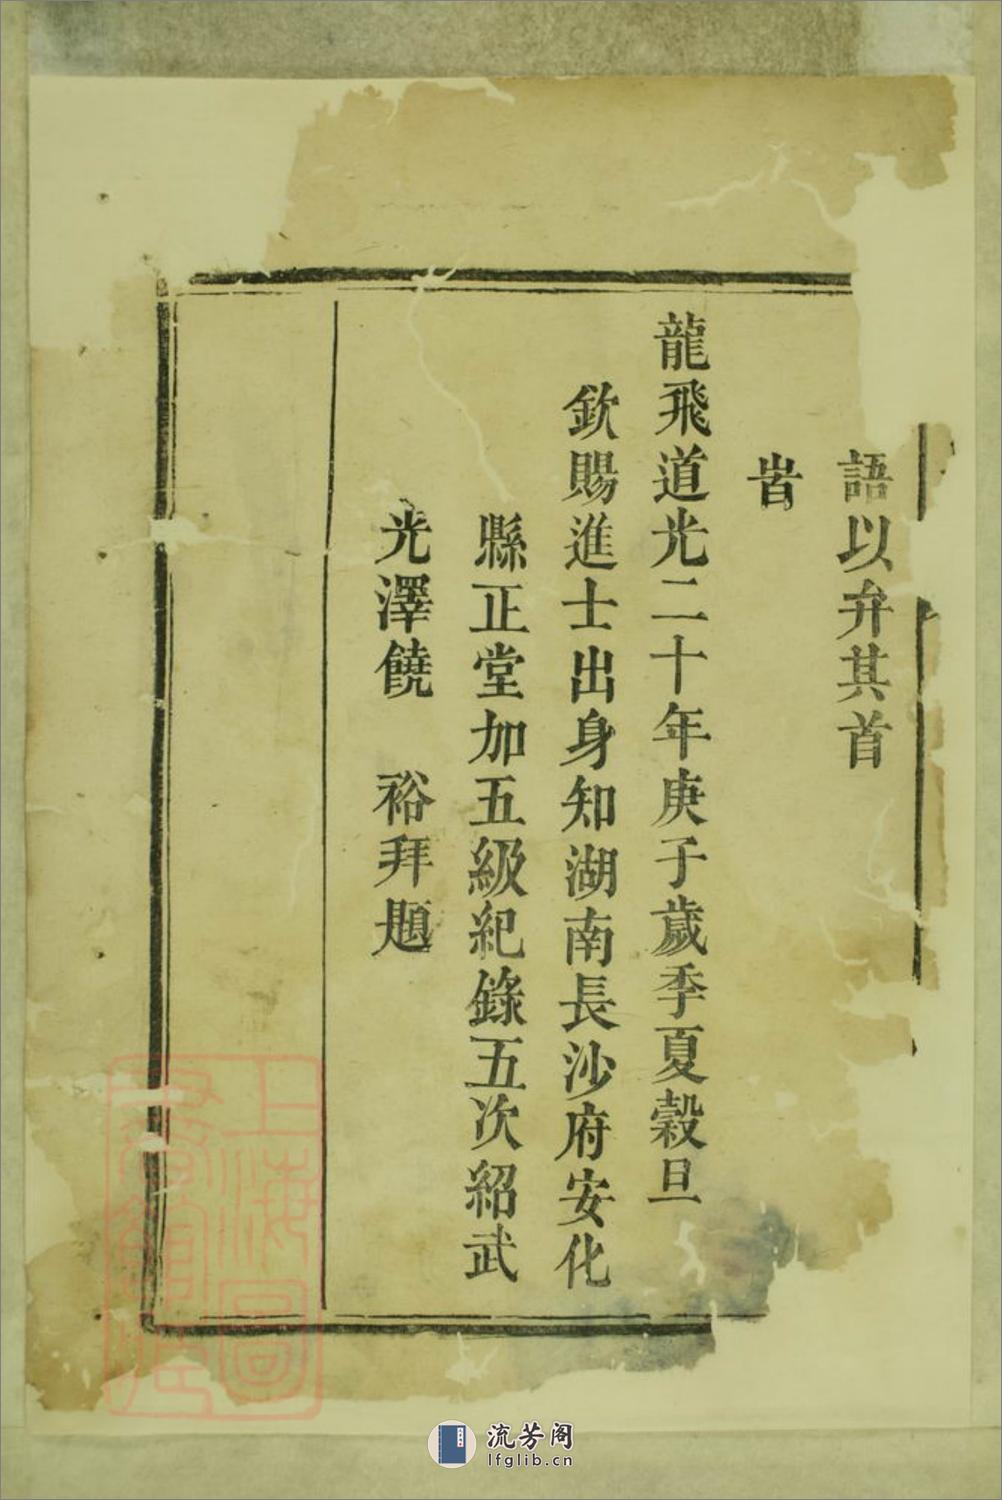 語以弁其首
旹
龍飛道光二十年庚子歲季夏穀旦
欽賜進士出身知湖南長沙府安化
縣正堂加五級紀錄五次紹武
光澤饒　裕拜題
上海圖
書館藏
流芳阁
lfglib.cn